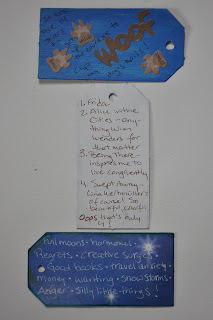 WOOF
1. Friday
2. Alice in the
Cities - any-
thing Wim
Wenders for
that matter
3. Being There -
inspires me to
live congruently
4. Swept Away -
Lina Wertmuller's
of course! So
beautiful, colorful
Oops that's only
4!
Full moons • hormones •
Regrets • creative surges •
Good books • travel anxiety •
money • wanting • snowstorms •
Anger • silly little things!